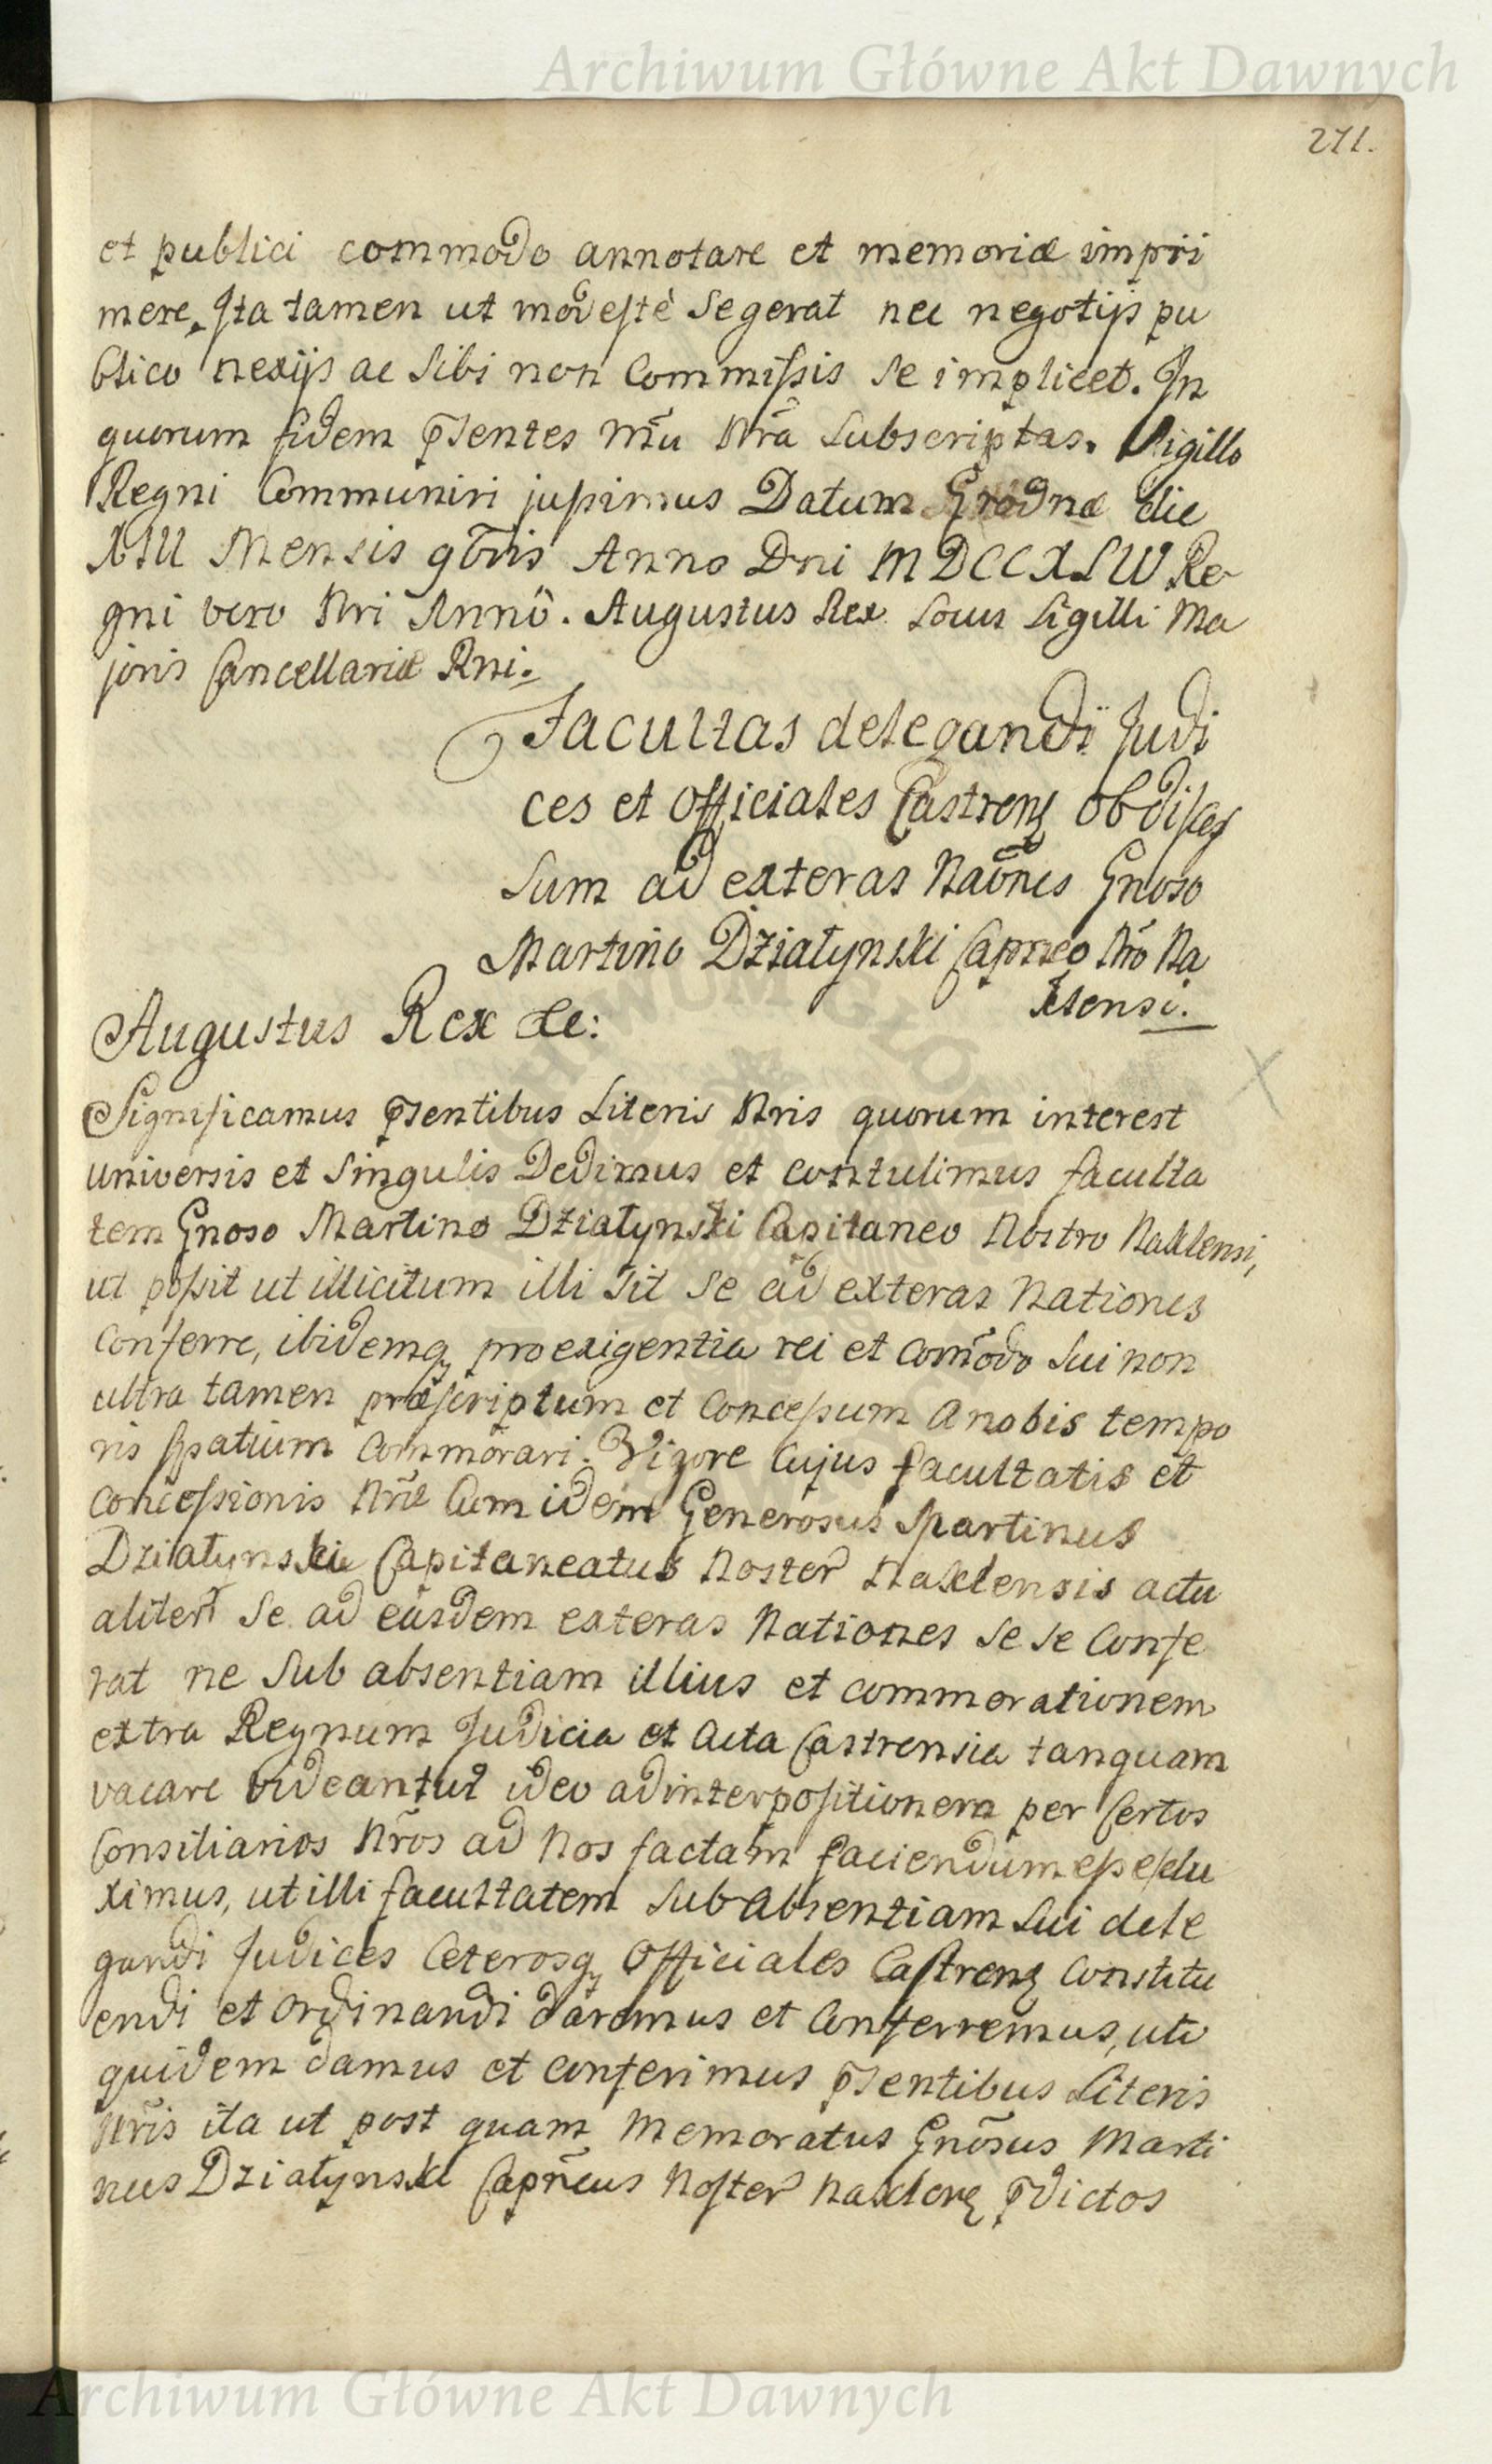 Archiwum Główne Akt Dawnych
271.
et publici commodo annotare et memoriæ impri
mere, Ita tamen ut modestè se gerat nec negotijs pu
blico nexijs ac sibi non commissis se implicet. In
quorum fidem pr̃sentes mãu Nr̃a subscriptas. Sigillo
Regni Communiri jussimus Datum Grodnæ die
Mensis 9bris Anno Dni MDCCXLIV Re
gni vero Nri Anno. Augustus Rex Locus Sigilli Ma
joris Cancellariæ Rni.
Facultas delegandi Judi
ces et Officiales Castrenz ob disces
sum ad exteras Naõnes Gnoso
Martino Dzialynski Capneo Nr̃o Na
klensi.
Augustus Rex &c:
Significamus pr̃sentibus Literis Nris quorum interest
universis et singulis Dedimus et contulimus faculta
tem Gnoso Martino Dzialynski Capitaneo Nostro Naklensi,
ut possit ut illicitum illi sit se ad exteras Nationes
conferre, ibidemq pro exigentia rei et com̃odo sui non
ultra tamen præscriptum et concessum a nobis tempo
ris spatium commorari. Vigore cujus facultatis et
concessionis Nr̃æ Cum idem Generosus Martinus
Dzialynski Capitaneatus Noster Naklensis actu
aliter se ad easdem exteras Nationes se se confe
rat ne sub absentiam illius et commorationem
extra Regnum Judicia et Acta Castrensia tanquam
vacare videantur ideo ad interpositionem per Certos
Consiliarios Nr̃os ad Nos factam faciendum esse du
ximus, ut illi facultatem sub absentiam sui dele
gandi Judices Ceterosq Officiales Castrenz Constitu
endi et ordinandi daremus et conferremus, uti
quidem damus et conferimus pr̃sentibus Literis
Nr̃is ita ut post quam Memoratus Gnõsus Marti
nus Dzialynski Capñeus Noster Naklenz pr̃dictos
Archiwum Główne Akt Dawnych